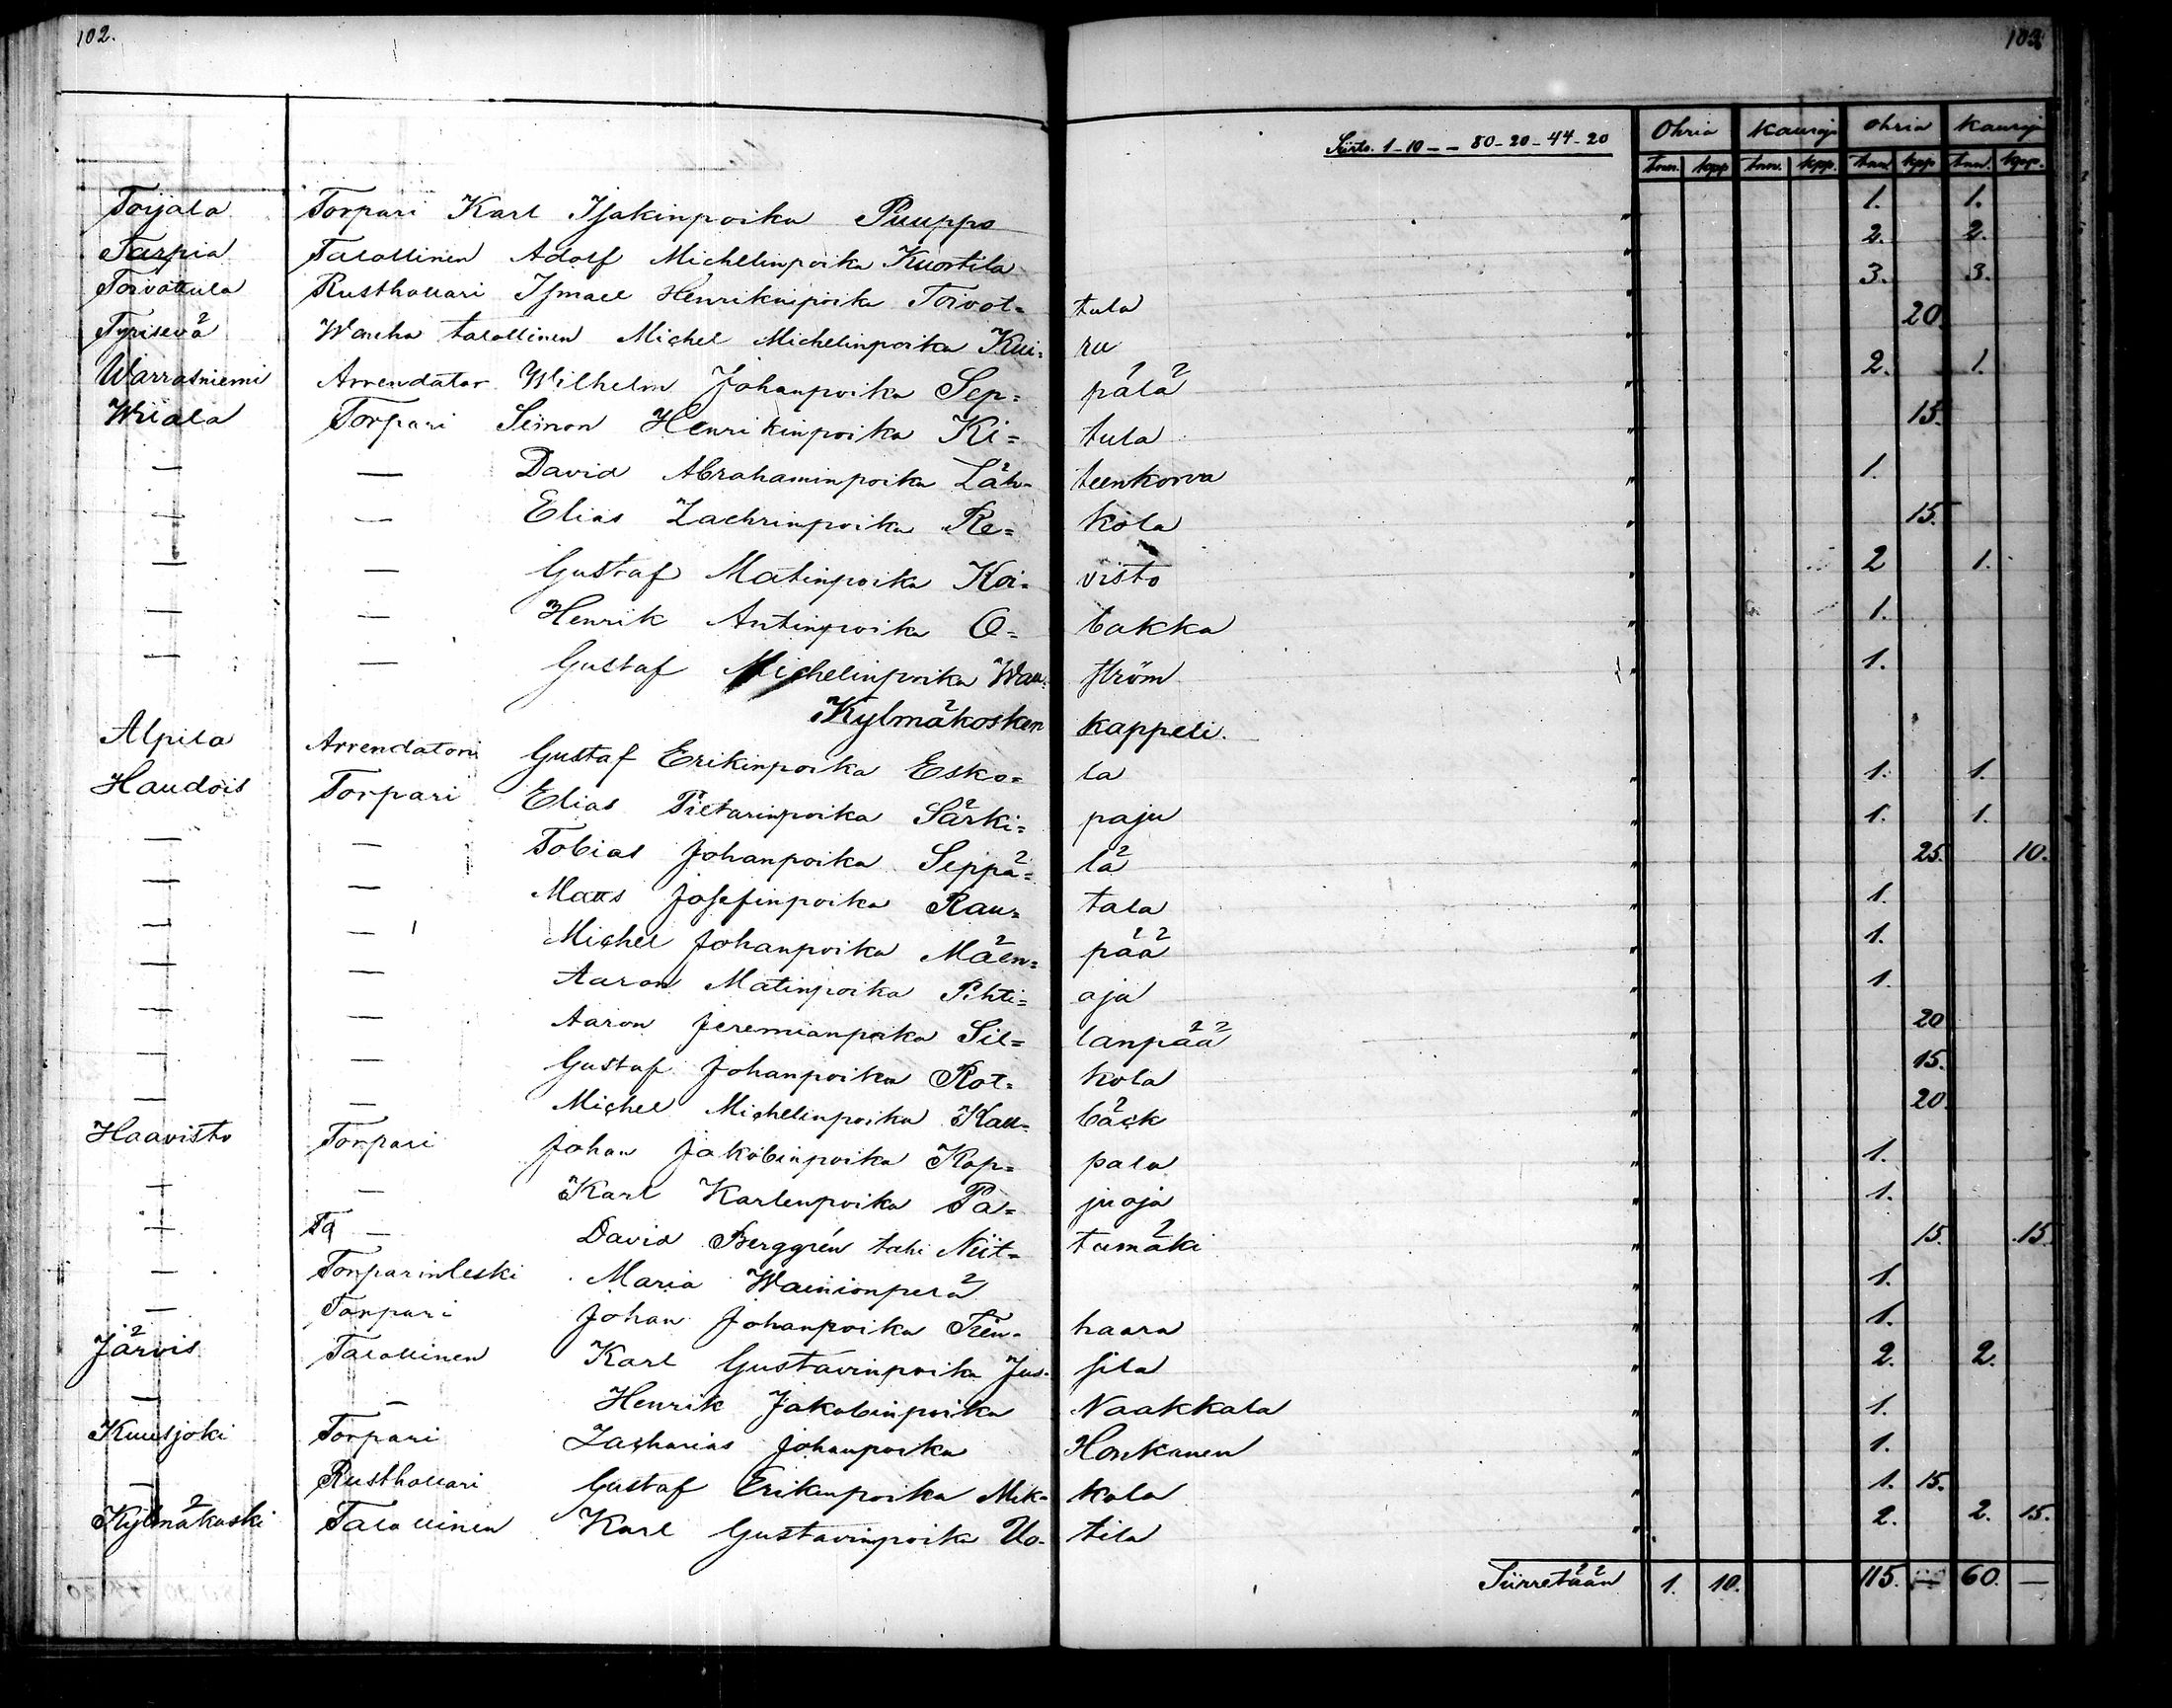 102.
103.
Siirto. 1-10 - - 80-20-44-20 Ohria Kauroja Ohria Kauroja
tunn. kpp tunn. kpp. tunn kpp tunn. kpp.
Torjala Torpari Karl Isakinpoika Puuppo " 1. 1.
Tarpia Talollinen Adolf Michelinpoika Kuortila " 2. 2.
Toivottula Rusthollari Ismael Henrikinpoika Toivot= tula " 3. 3.
Typisevä Wanha talollinen Michel Michelinpoika Kui= ru " 20.
Warrasniemi Arrendator Wilhelm Johanpoika Sep= pälä " 2. 1.
Wiiala Torpari Simon Henrikinpoika Ki= tula " 15.
— — David Abrahaminpoika Läh= teenkorva " 1.
— — Elias Zachrinpoika Re= kola " 15.
— — Gustaf Matinpoika Koi= visto " 2 1.
— — Henrik Antinpoika O= takka " 1.
— — Gustaf Michelinpoika Wau= ström " 1.
Kylmäkosken kappeli.
Alpila Arrendatori Gustaf Erikinpoika Esko= la " 1. 1.
Haudois Torpari Elias Pietarinpoika Särki= paju " 1. 1.
— — Tobias Johanpoika Seppä= lä " 25. 10.
— — Matts Josefinpoika Rau= tala " 1.
— — Michel Johanpoika Mäen= pää " 1.
— — Aaron Matinpoika Pihti= oja " 1.
— — Aaron Jeremianpoika Sil= lanpää " 20
— — Gustaf Johanpoika Rot= kola " 15.
— — Michel Michelinpoika Kau= bäck " 20.
Haavisto Torpari Johan Jakobinpoika Kop= pala " 1.
— — Karl Karlenpoika Pa= juoja " 1.
— — David Berggrén tahi Niit= tumäki " 15. 15.
— Torparinleski Maria Wainionperä " 1.
— Torpari Johan Johanpoika Tien= haara " 1.
Järvis Talollinen Karl Gustavinpoika Jus= sila " 2. 2.
— — Henrik Jakobinpoika Naakkala " 1.
Kuusjoki Torpari Zacharias Johanpoika Honkanen " 1.
— Rusthollari Gustaf Erikinpoika Mik= kola " 1. 15.
Kylmäkoski Talollinen Karl Gustavinpoika Uo= tila " 2. 2. 15.
Siirretään 1. 10. 115. — 60. —